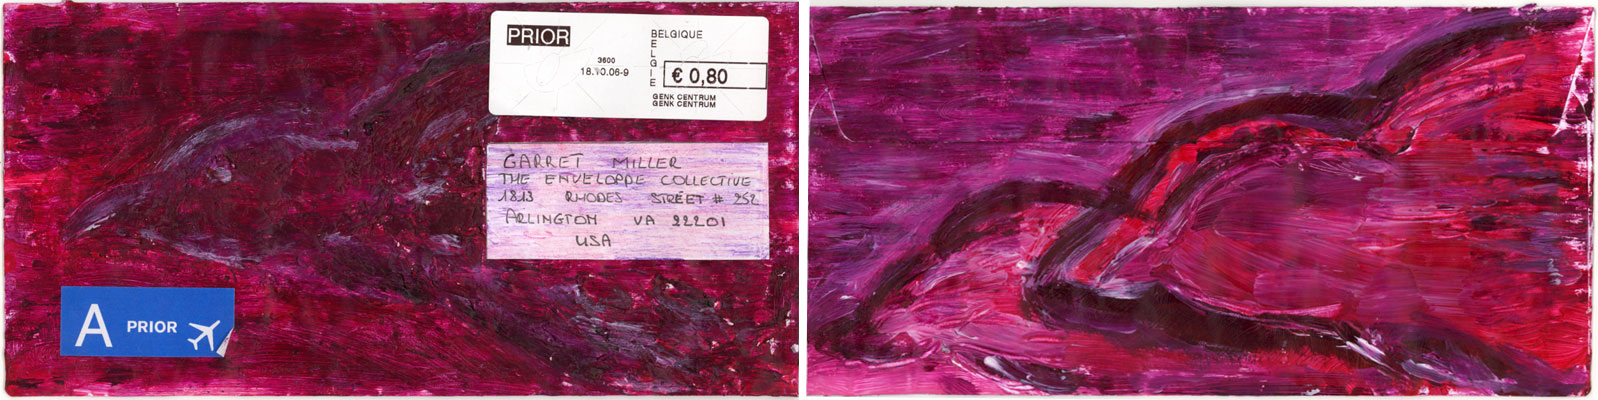 PRIOR
BELGIQUE
BELGIE
3600
18.10.06-9
€ 0,80
GENK CENTRUM
GENK CENTRUM
GARRET MILLER
THE ENVELOPPE COLLECTIVE
1813 RHODES STREET # 252
ARLINGTON VA 22201
USA
A PRIOR